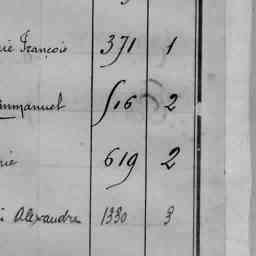 François 371 1
Emmanuel 516 2
619 2
Alexandre 1330 3